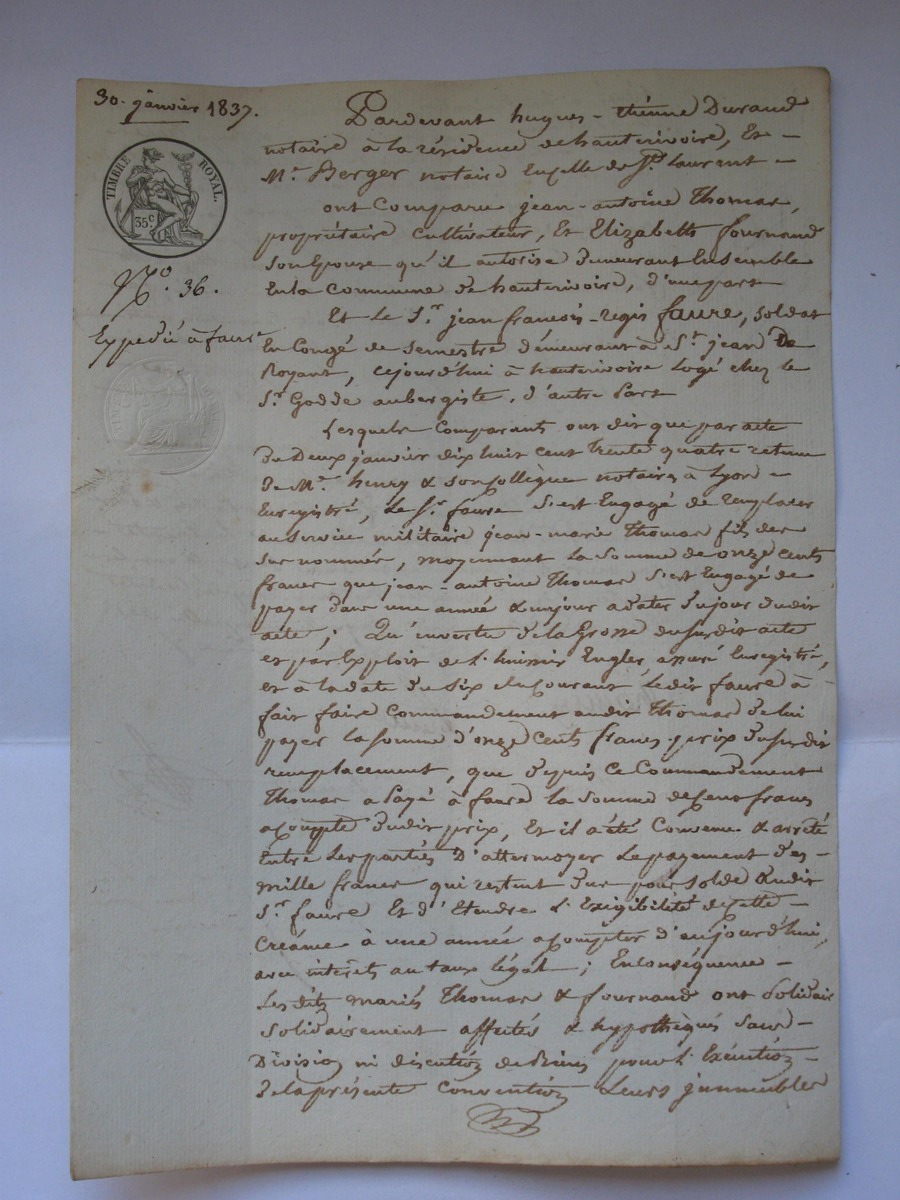 30. janvier 1837.
TIMBRE ROYAL.
35.c
No. 36.
Expedié à faure
Pardevant hugues-étienne Durand
notaire à la résidence de hauterivoire, Et
Mr. Berger notaire En celle de St. Laurent
ont Comparu jean-antoine Thomas,
propriétaire cultivateur, Et Elizabeth fournand
son Epouse qu'il autorise demeurant Ensemble
En la Commune de hauterivoire, d'une part
Et le Sr. jean francois-regis faure, soldat
En Congé de semestre demeurant à St. jean De
Royant, cejourd'hui à hauterivoire logé chez le
Sr. Godde aubergiste, d'autre Part
Lesquels Comparants ont dit que par acte
du Deux janvier dix huit cent trente quatre retenu
de Me. henry & son Collègue notaires à Lyon
Enregistré, Le Sr. faure s'est Engagé de remplacer
au service militaire jean-marie Thomas fils des
sus nommés, moyennant la somme de onze cents
francs que jean-antoine Thomas s'est Engagé de
payer dans une année & un jour a dater du jour dudit
acte; Qu'en vertu de la Grosse du susdit acte
et par Exploit de l'huissier Engler, Enregistré,
et à la date du six du Courant Ledit faure à
fait faire Commandement audit Thomas de lui
payer la somme d'onze Cents francs prix du susdit
remplacement, que depuis ce Commandement
Thomas a Payé à faure la somme de Cent francs
acompte dudit prix, Et il a été Convenu & arrêté
Entre Les parties D'attermoyer Le payement des
mille francs qui restent dus pour solde audit
Sr. faure Et d'Etendre l'Exigibilité de cette
Créance à une année à Compter d'aujourd'hui,
avec intérêts au taux légal; En Conséquence
Lesdits mariés Thomas & fournand ont
solidairement affectés & hypothéqués sans
Division ni discution de Biens pour l'Exécution
de la présente Convention Leurs immeubles